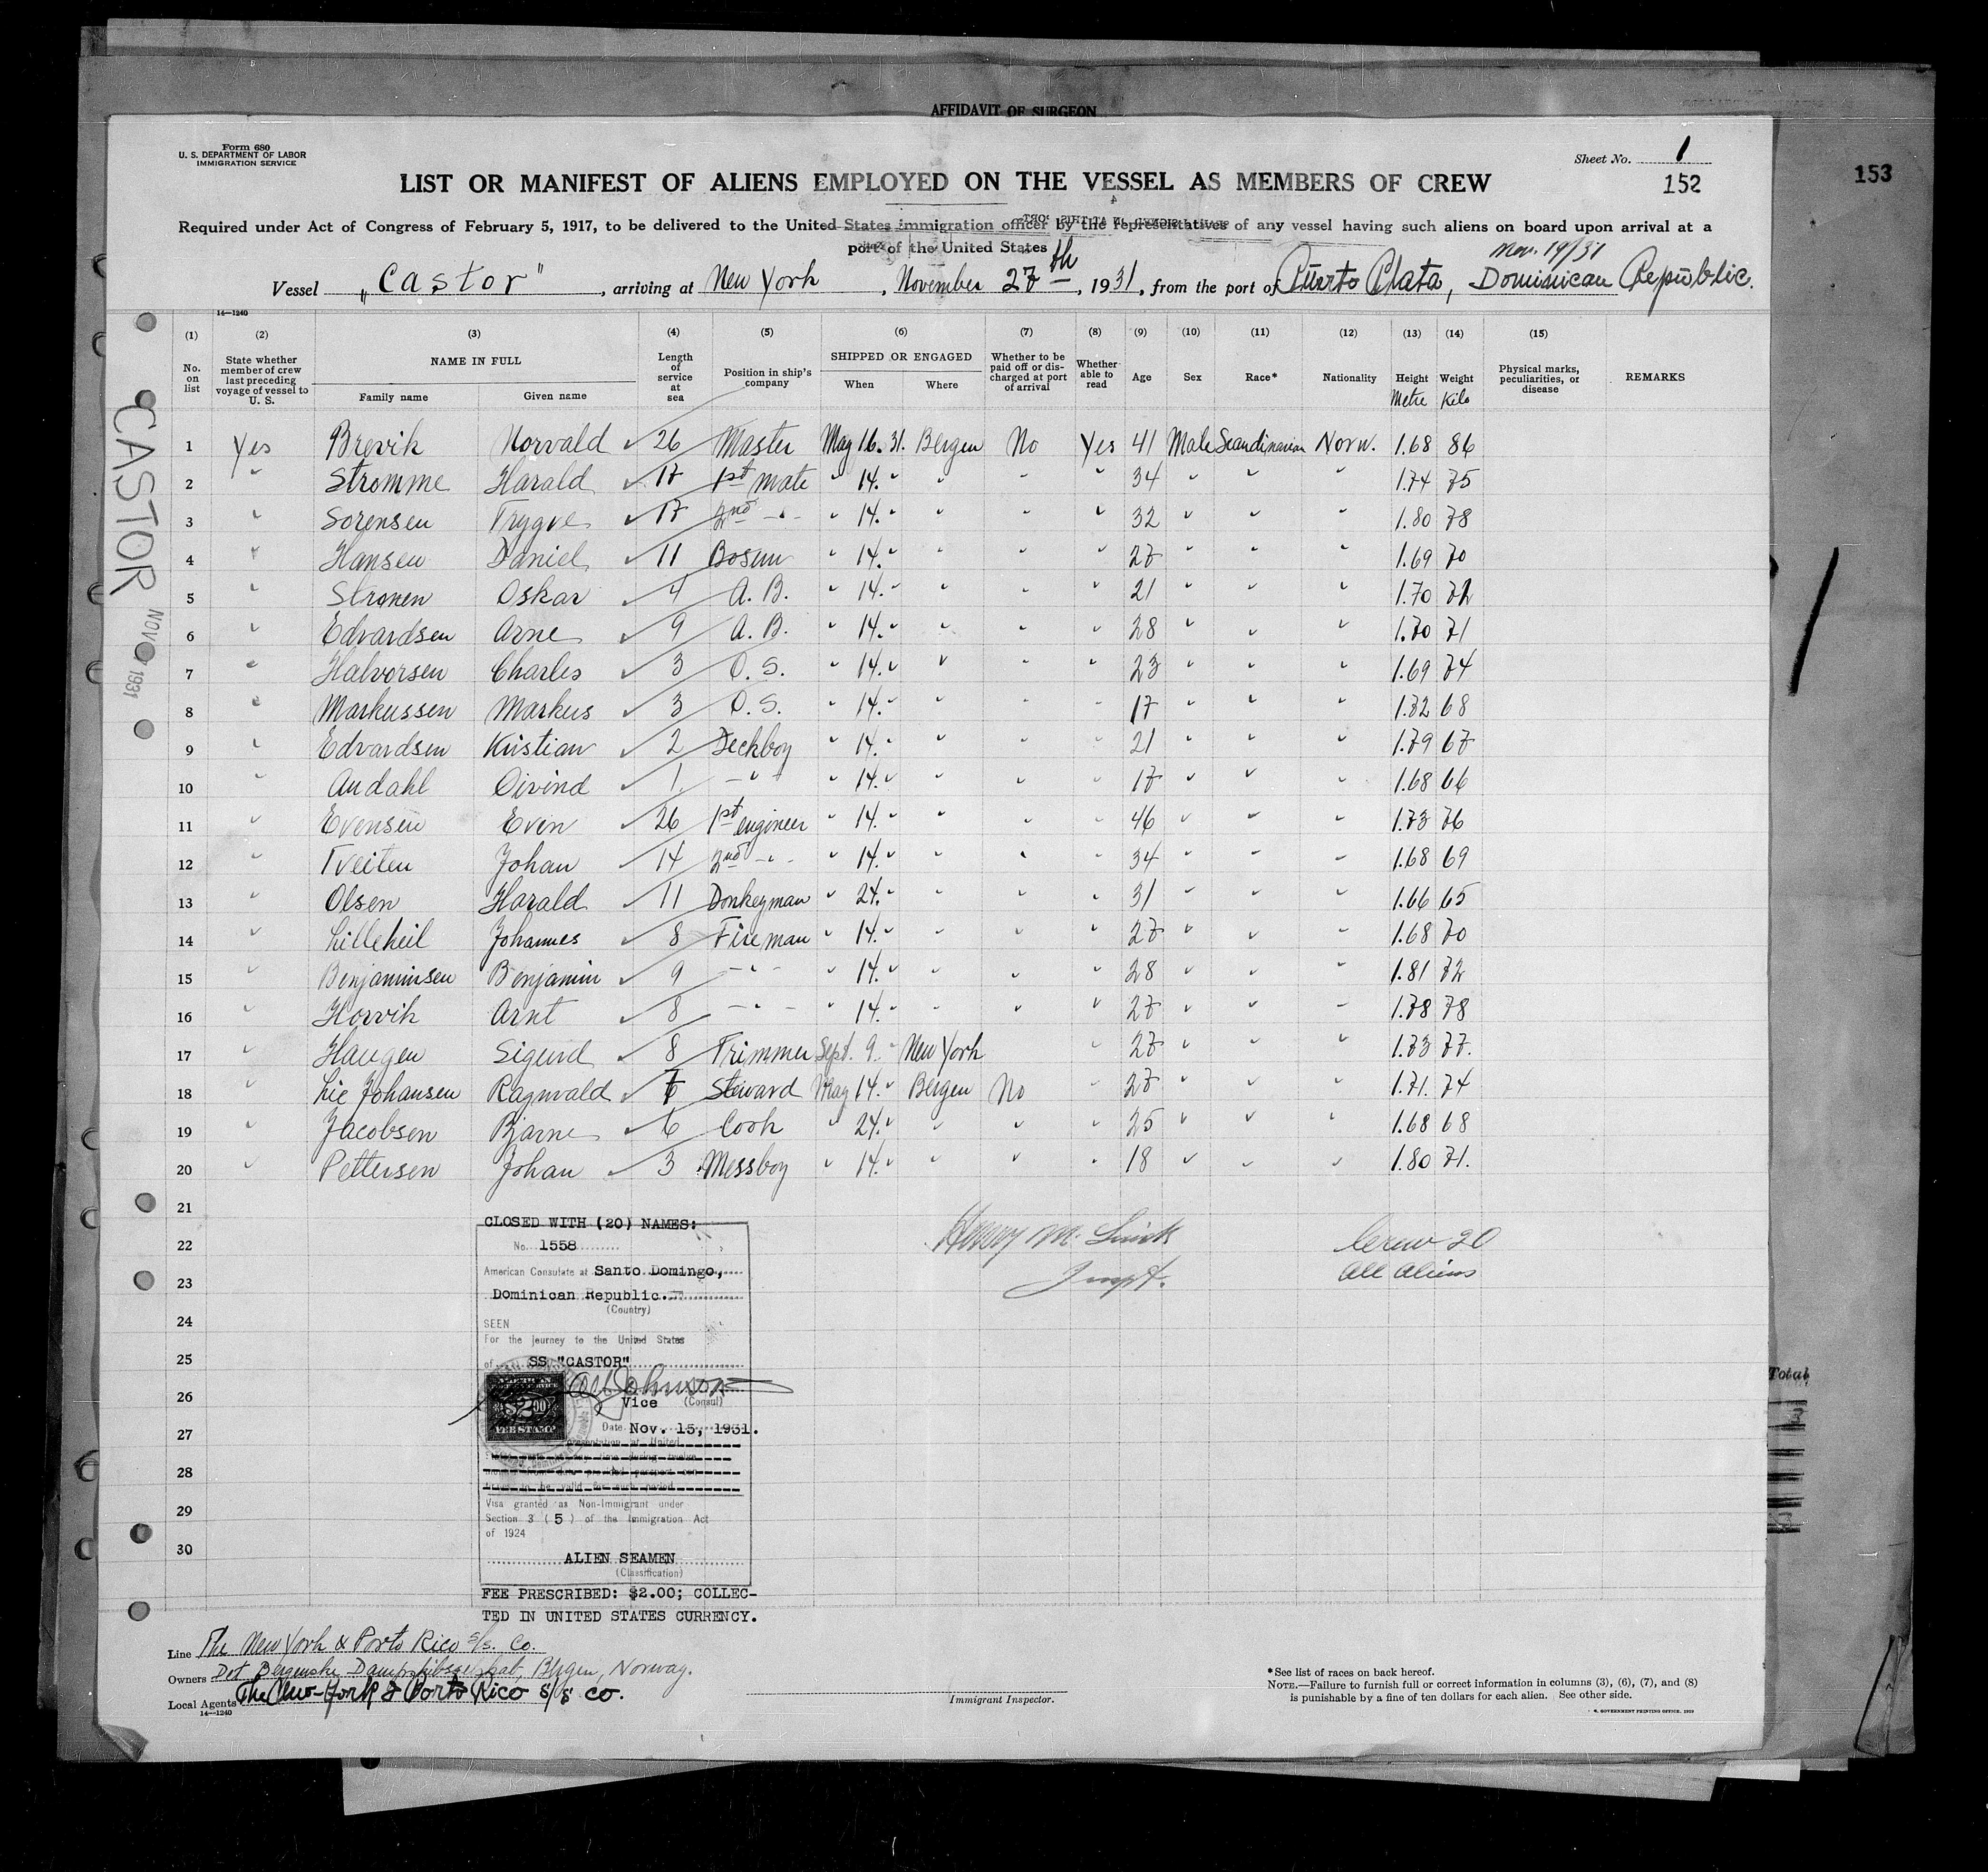 AFFIDAVIT OF SURGEON
Form 680
U. S. DEPARTMENT OF LABOR
IMMIGRATION SERVICE
Sheet No. 1
152
153
LIST OR MANIFEST OF ALIENS EMPLOYED ON THE VESSEL AS MEMBERS OF CREW
Required under Act of Congress of February 5, 1917, to be delivered to the United States immigration officer by the representatives of any vessel having such aliens on board upon arrival at a
port of the United States
Nov. 19/31
Vessel "Castor", arriving at New York, November 27th, 1931, from the port of Puerto Plata, Dominican Republic.
14—1240
(1) (2) (3) (4) (5) (6) (7) (8) (9) (10) (11) (12) (13) (14) (15)
No. on list
State whether member of crew last preceding voyage of vessel to U. S.
NAME IN FULL
Family name
Given name
Length of service at sea
Position in ship's company
SHIPPED OR ENGAGED
When
Where
Whether to be paid off or discharged at port of arrival
Whether able to read
Age
Sex
Race*
Nationality
Height
Metre
Weight
Kilo
Physical marks, peculiarities, or disease
REMARKS
CASTOR
NOV 1931
1 Yes Brevik Norvald ✓ 26 Master May 16. 31. Bergen No Yes 41 Male Scandinavian Norw. 1.68 86
2 " Stromme Harald ✓ 17 1st mate " 14. " " " " 34 " " " 1.74 75
3 " Sorensen Trygve ✓ 17 2nd -"- " 14. " " " " 32 " " " 1.80 78
4 " Hansen Daniel ✓ 11 Bosun " 14. " " " " 27 " " " 1.69 70
5 " Stronen Oskar ✓ 4 A. B. " 14. " " " " 21 " " " 1.70 72
6 " Edvardsen Arne ✓ 9 A. B. " 14. " " " " 28 " " " 1.70 71
7 " Halvorsen Charles ✓ 3 O. S. " 14. " " " " 23 " " " 1.69 74
8 " Markussen Markus ✓ 3 O. S. " 14. " " " " 17 " " " 1.82 68
9 " Edvardsen Kristian ✓ 2 Deckboy " 14. " " " " 21 " " " 1.79 67
10 " Audahl Oivind ✓ 1. -"- " 14. " " " " 17 " " " 1.68 66
11 " Evensen Even ✓ 26 1st engineer " 14. " " " " 46 " " " 1.73 76
12 " Tveiten Johan ✓ 14 2nd -"- " 14. " " " " 34 " " " 1.68 69
13 " Olsen Harald ✓ 11 Donkeyman " 24. " " " " 31 " " " 1.66 65
14 " Lilleheil Johannes ✓ 8 Fireman " 14. " " " " 27 " " " 1.68 70
15 " Benjaminsen Benjamin ✓ 9 -"- " 14. " " " " 28 " " " 1.81 72
16 " Horvik Arnt ✓ 8 -"- " 14. " " " " 27 " " " 1.78 78
17 " Haugen Sigurd ✓ 8 Trimmer Sept. 9. " New York " 27 " " " 1.73 77.
18 " Lie Johansen Ragnvald ✓ 6 Steward May 14. " Bergen No " 27 " " " 1.71. 74
19 " Jacobsen Bjarne ✓ 6 Cook " 24. " " " " 25 " " " 1.68 68
20 " Pettersen Johan ✓ 3 Messboy " 14. " " " " 18 " " " 1.80 71.
21
22
23
24
25
26
27
28
29
30
CLOSED WITH (20) NAMES:
No. 1558
American Consulate at Santo Domingo,
Dominican Republic.
(Country)
SEEN
For the journey to the United States
of SS "CASTOR"
Johnson
Vice (Consul)
$2.00
FEE STAMP
Date Nov. 15, 1931.
Visa granted as Non-Immigrant under
Section 3 (5) of the Immigration Act
of 1924
ALIEN SEAMEN
(Classification)
FEE PRESCRIBED: $2.00; COLLEC-
TED IN UNITED STATES CURRENCY.
Henry M.
Inspt.
Crew 20
All Aliens
Total
Line The New York & Porto Rico S/S. Co.
Owners Det Bergenske Dampskibsselskab, Bergen, Norway.
Local Agents The New-York & Porto Rico S/S Co.
14—1240
Immigrant Inspector.
*See list of races on back hereof.
NOTE.—Failure to furnish full or correct information in columns (3), (6), (7), and (8)
is punishable by a fine of ten dollars for each alien. See other side.
U. S. GOVERNMENT PRINTING OFFICE. 1929